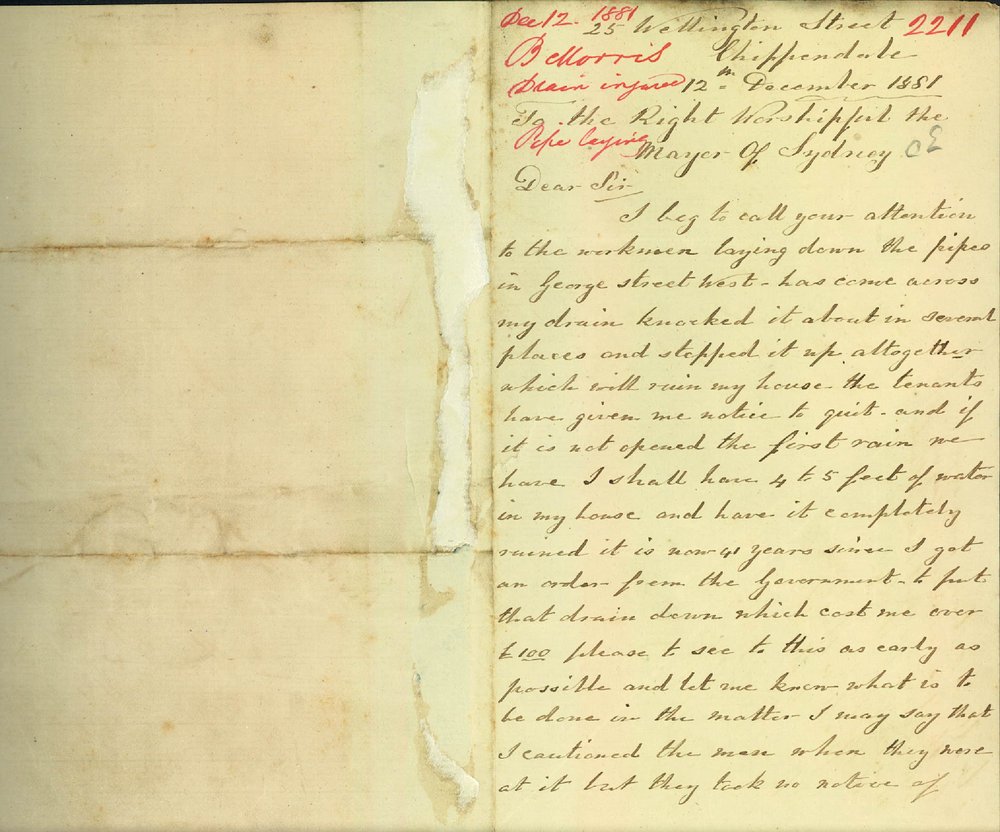 Dec 12. 1881
25 Wellington Street 2211
B Morris Chippendale
Drain injured 12th December 1881
To the Right Worshipful the
Pipe laying Mayor Of Sydney
Dear Sir
I beg to call your attention
to the workmen laying down the pipes
in George Street West - has come across
my drain knocked it about in several
places and stopped it up altogether
which will ruin my house the tenants
have given me notice to quit - and if
it is not opened the first rain we
have I shall have 4 to 5 feet of water
in my house and have it completely
ruined it is now 41 years since I got
an order from the Government - to put
that drain down which cost me over
£100 please to see to this as early as
possible and let me know what is to
be done in the matter I may say that
I cautioned the men when they were
at it but they took no notice of